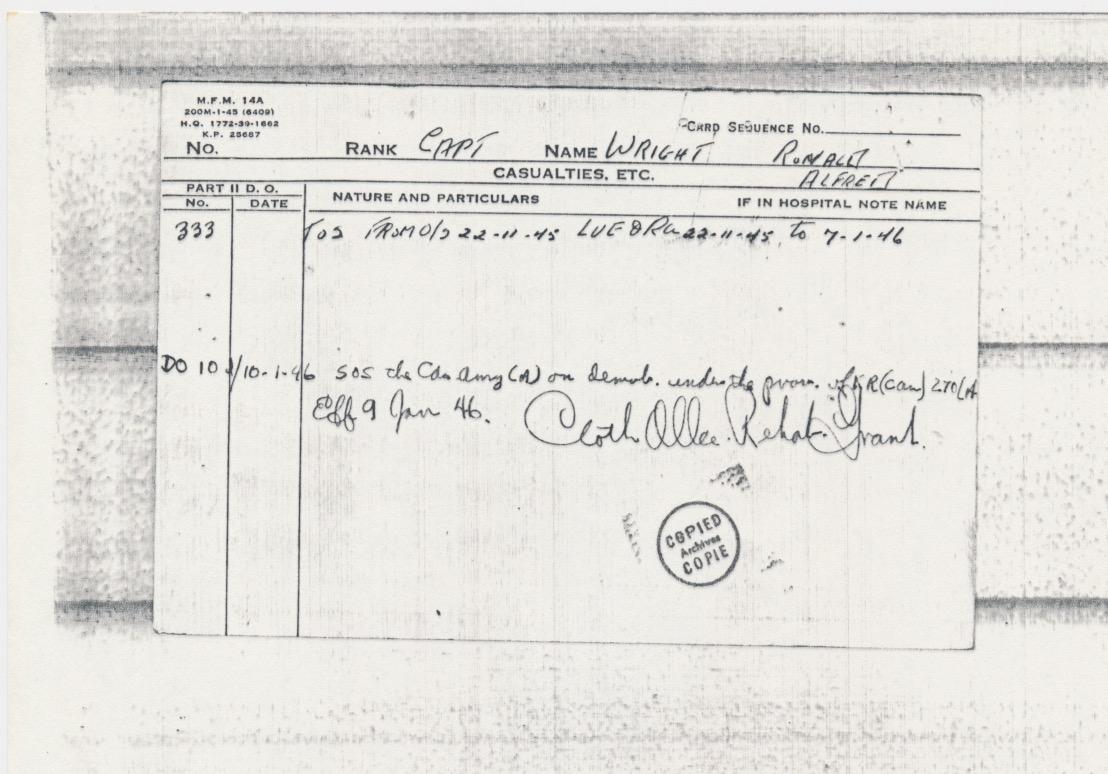 M.F.M. 14A
200M-1-45 (6409)
H.Q. 1772-39-1662
K.P. 25687
CARD SEQUENCE NO.
NO. RANK CAPT NAME WRIGHT RONALD
ALFRED
CASUALTIES, ETC.
PART II D. O.
NO. DATE NATURE AND PARTICULARS IF IN HOSPITAL NOTE NAME
333 TOS FROM O/S 22-11-45 LVE & RA 22-11-45 to 7-1-46
DO 10 10-1-46 SOS the Cdn Army (A) on demob. under the prov. of KR (Can) 270(A
Eff 9 Jan 46. Cloth Allce. Rehab. Grant.
COPIED
Archives
COPIE